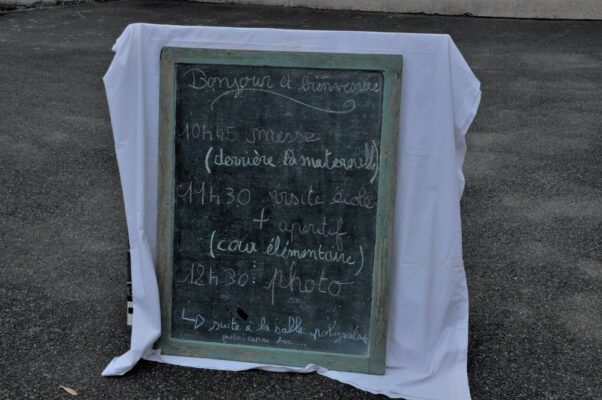 Bonjour et bienvenue
10h45 messe
(derrière la maternelle)
11h30 visite école
+ apéritif
(cour élémentaire)
12h30: photo
↳ suite à la salle polyvalente